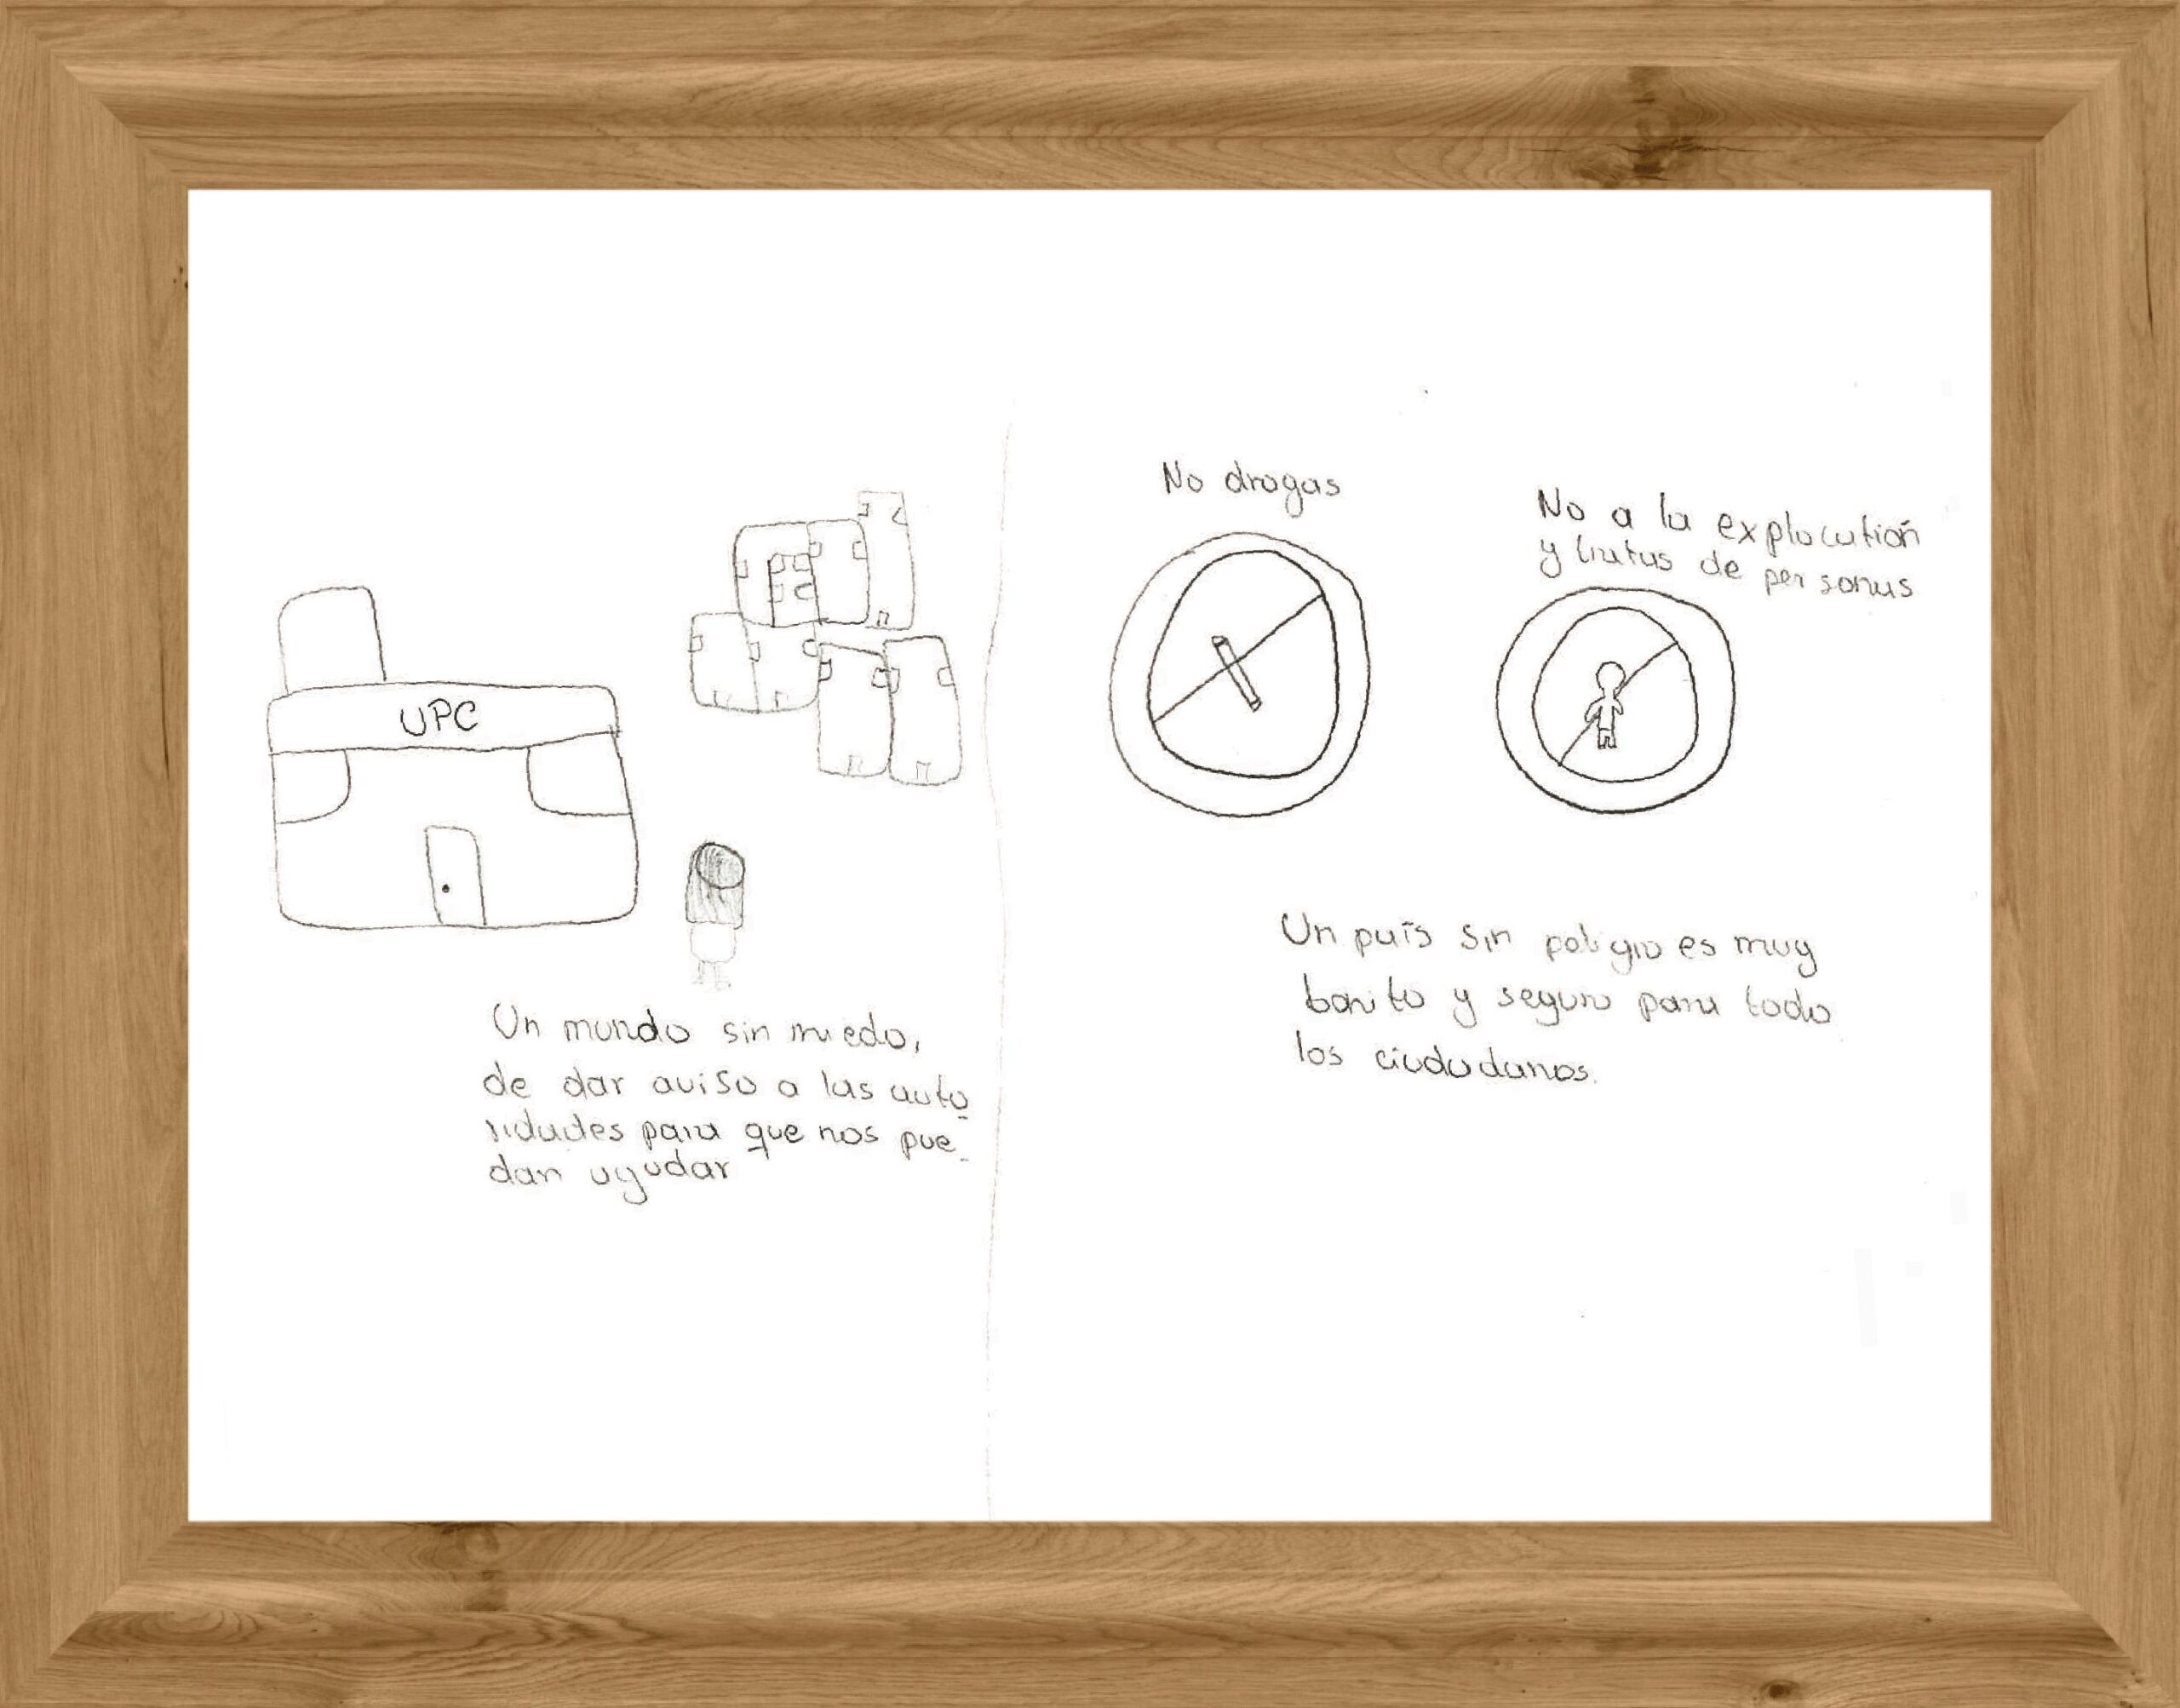 UPC
Un mundo sin miedo,
de dar aviso a las auto
ridades para que nos pue
dan ayudar
No drogas
No a la explocutión
y tratas de personas
Un país sin peligro es muy
bonito y seguro para todo
los ciudadanos.